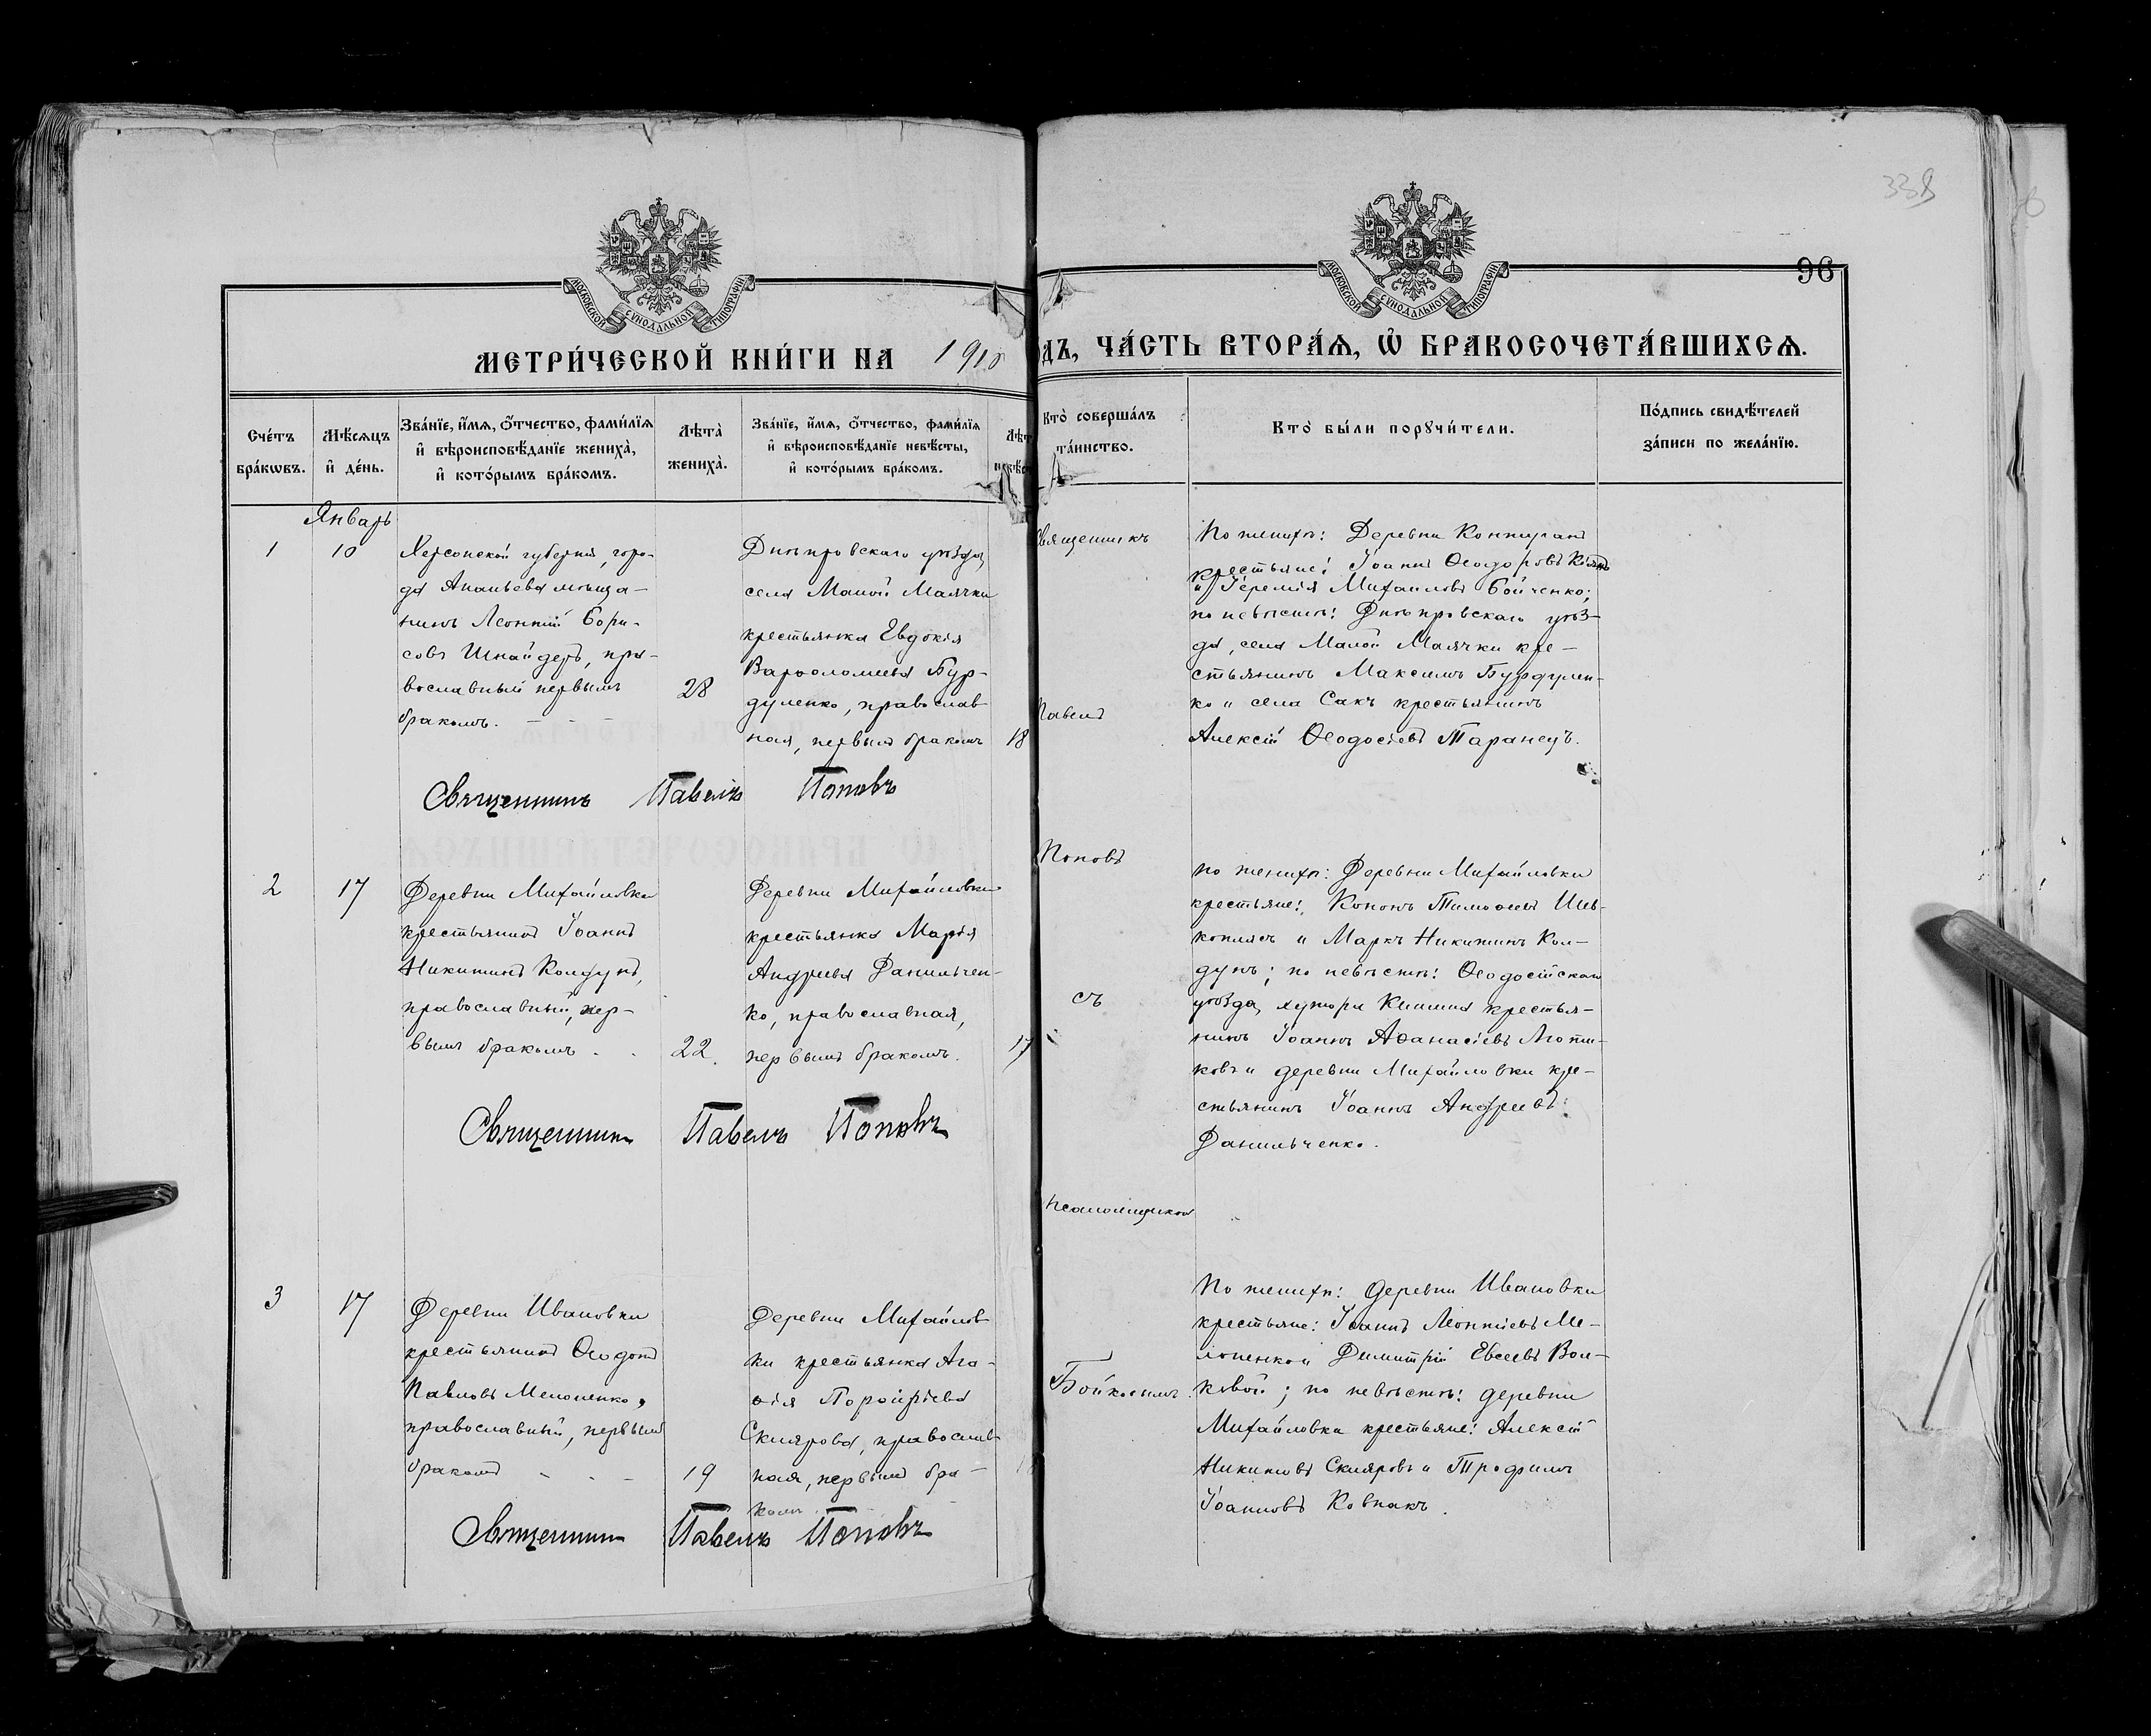 338
96
МОСКОВСКОЙ СѴНОДАЛЬНОЙ ТИПОГРАФІИ
МОСКОВСКОЙ СѴНОДАЛЬНОЙ ТИПОГРАФІИ
МЕТРИ́ЧЕСКОЙ КНИ́ГИ НА 1910
ДЪ, ЧА́СТЬ ВТОРА́Ѧ, Ѡ БРАКОСОЧЕТА́ВШИХСѦ.
Сче́тъ бра́кѡвъ.
Мѣ́сѧцъ и҆ де́нь.
Зва́нїе, и҆́мѧ, ѻ҆́тчество, фами́лїѧ
и҆ вѣроисповѣ́данїе жениха̀,
и҆ кото́рымъ бра́комъ.
Лѣта̀ жениха̀.
Зва́нїе, и҆́мѧ, ѻ҆́тчество, фами́лїѧ
и҆ вѣроисповѣ́данїе невѣ́сты,
и҆ кото́рымъ бра́комъ.
Кто̀ соверша́лъ
та́инство.
Кто̀ бы́ли порꙋчи́тели.
По́дпись свидѣ́телей
за́писи по жела́нїю.
Январь
1
10
Херсонской губерніи, горо-
да Ананьева мѣща-
нинъ Леонтій Бори-
совъ Шнайдеръ, пра-
вославный первымъ
бракомъ.
28
Днѣпровскаго уѣзда,
села Малой Маячки
крестьянка Евдокія
Варѳоломеева Бур-
дуленко, православ
ная, первымъ бракомъ
18
Священникъ
Павелъ
Поповъ
съ
псаломщикомъ
Бойкосымъ
По женихѣ: Деревни
крестьяне: Іоаннъ Ѳеодоровъ
и Іеремія Михаиловъ Бойченко;
по невѣстѣ: Днѣпровскаго уѣз-
да, села Малой Маячки кре-
стьянинъ Максимъ Бурдулен-
ко и села Сакъ крестьянинъ
Алексій Ѳеодосіевъ Таранецъ.
Священникъ Павелъ Поповъ
2
17
Деревни Михайловки
крестьянинъ Іоаннъ
Никитинъ Колдунъ,
православный, пер-
вымъ бракомъ
22.
Деревни Михайловки
крестьянка Марія
Андреева Данильчен-
ко, православная,
первымъ бракомъ.
17
по женихѣ: Деревни Михайловки
крестьяне: Кононъ Тимоѳеевъ Шев-
коплясъ и Маркъ Никитинъ Кол-
дунъ; по невѣстѣ: Ѳеодосійскаго
уѣзда, хутора крестья-
нинъ Іоаннъ Аѳанасіевъ
ковъ и деревни Михайловки кре-
стьянинъ Іоаннъ Андреевъ
Данильченко.
Священникъ Павелъ Поповъ
3
17
Деревни Ивановки
крестьянинъ Ѳеодотъ
Павловъ Мелоненко,
православный, первымъ
бракомъ
19
Деревни Михайлов-
ки крестьянка Ага-
ѳія Порфиріева
Склярова, православ-
ная, первымъ бра-
комъ
По женихѣ: Деревни Ивановки
крестьяне: Іоаннъ Леонтіевъ Ме-
лоненко и Димитрій Евсеевъ Вол-
ковой; по невѣстѣ: деревни
Михайловки крестьяне: Алексій
Никитовъ Скляровъ и Трофимъ
Іоанновъ Ковпакъ.
Священникъ Павелъ Поповъ